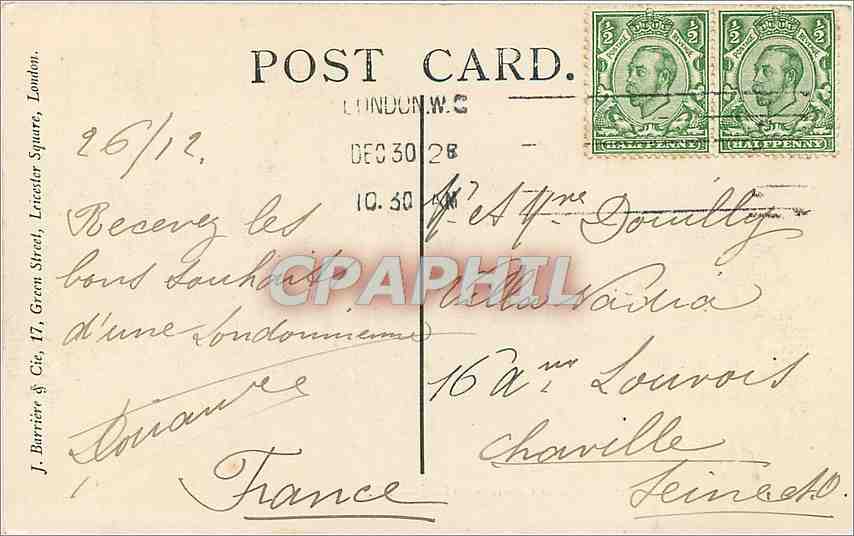 POST CARD.
LONDON.W.C
DEC 30 12
10.30 AM
½ ½
POSTAGE REVENUE
HALFPENNY
½ ½
POSTAGE REVENUE
HALFPENNY
J. Barrière & Cie, 17, Green Street, Leicester Square, London.
26/12.
Recevez les
bons souhaits
d'une Londonienne
Mr et Mme Douilly
Villa Nadia
16 Ave Louvois
Chaville
Seine et O
France
CPAPHIL